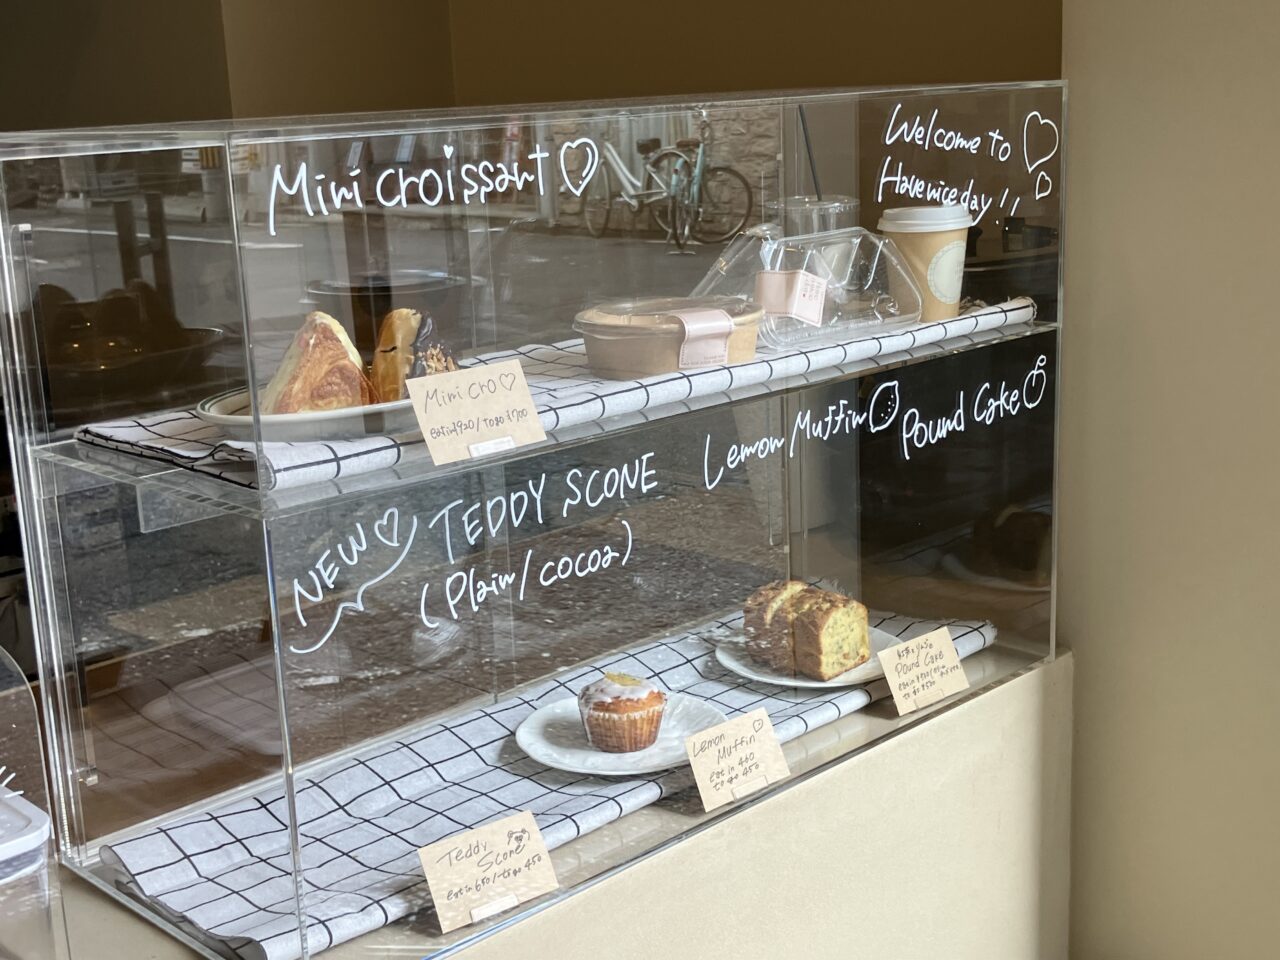 Mini Croissant
Welcome to
Have nice day!!
Mini cro
eat in ¥920/to go ¥700
NEW
TEDDY SCONE
(Plain/cocoa)
Lemon Muffin
Pound Cake
Pound Cake
Lemon
Muffin
eat in 460
to go 450
Teddy
Scone
eat in 650/to go 450